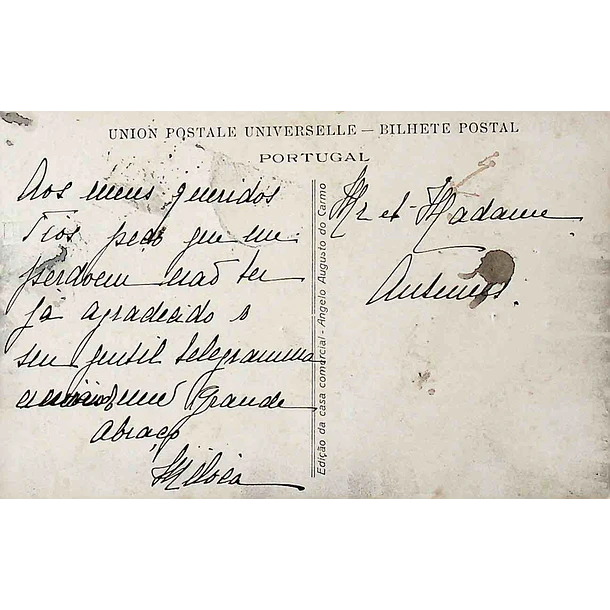 UNION POSTALE UNIVERSELLE — BILHETE POSTAL
PORTUGAL
Aos meus queridos
Tios peço que me
perdoem não ter
já agradecido o
seu gentil telegramma
um grande
Abraço
Edição da casa comercial - Angelo Augusto do Carmo
Mr et Madame